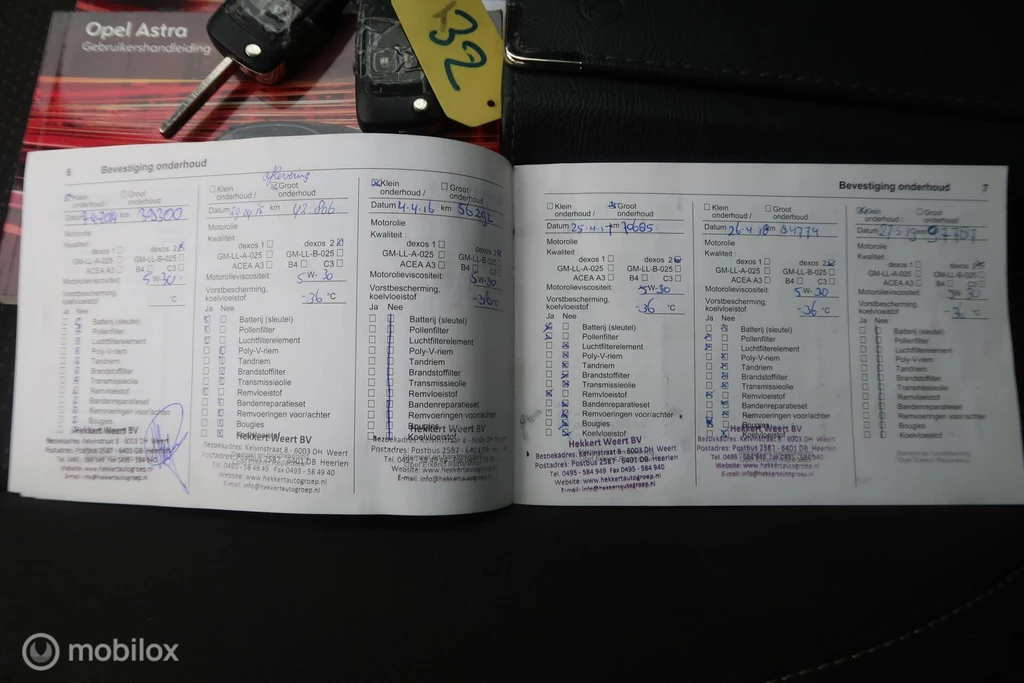 Opel Astra
Gebruikershandleiding
32
6 Bevestiging onderhoud
Klein onderhoud / Groot onderhoud
Datum km 39300
Motorolie
Kwaliteit
dexos 1 dexos 2
GM-LL-A-025 GM-LL-B-025
ACEA A3 B4 C3
Motorolieviscositeit: 5W-30
Vorstbescherming, koelvloeistof °C
Ja Nee
Batterij (sleutel)
Pollenfilter
Luchtfilterelement
Poly-V-riem
Tandriem
Brandstoffilter
Transmissieolie
Remvloeistof
Bandenreparatieset
Remvoeringen voor/achter
Bougies
Hekkert Weert BV
Bezoekadres: Kelvinstraat 8 - 6003 DH Weert
Postadres: Postbus 2587 - 6401 DB Heerlen
Tel. 0495 - 584 940 Fax 0495 - 584 940
Website: www.hekkertautogroep.nl
E-mail: info@hekkertautogroep.nl
aflevering
Klein onderhoud / Groot onderhoud
Datum km 42.806
Motorolie
Kwaliteit :
dexos 1 dexos 2
GM-LL-A-025 GM-LL-B-025
ACEA A3 B4 C3
Motorolieviscositeit: 5W-30
Vorstbescherming, koelvloeistof -36 °C
Ja Nee
Batterij (sleutel)
Pollenfilter
Luchtfilterelement
Poly-V-riem
Tandriem
Brandstoffilter
Transmissieolie
Remvloeistof
Bandenreparatieset
Remvoeringen voor/achter
Bougies
Koelvloeistof
Hekkert Weert BV
Bezoekadres: Kelvinstraat 8 - 6003 DH Weert
Postadres: Postbus 2587 - 6401 DB Heerlen
Website: www.hekkertautogroep.nl
E-mail: info@hekkertautogroep.nl
Klein onderhoud / Groot onderhoud
Datum 4-4-16 km
Motorolie
Kwaliteit :
dexos 1 dexos 2
GM-LL-A-025 GM-LL-B-025
ACEA A3 B4 C3
Motorolieviscositeit: 5W-30
Vorstbescherming, koelvloeistof -36 °C
Ja Nee
Batterij (sleutel)
Pollenfilter
Luchtfilterelement
Poly-V-riem
Tandriem
Brandstoffilter
Transmissieolie
Remvloeistof
Bandenreparatieset
Remvoeringen voor/achter
Bougies
Koelvloeistof
Hekkert Weert BV
Postadres: Postbus 2587
Website: www.hekkertautogroep.nl
E-mail: info@hekkertautogroep.nl
Bevestiging onderhoud 7
Klein onderhoud / Groot onderhoud
Datum 25-4-17 km 70685
Motorolie
Kwaliteit :
dexos 1 dexos 2
GM-LL-A-025 GM-LL-B-025
ACEA A3 B4 C3
Motorolieviscositeit: 5W-30
Vorstbescherming, koelvloeistof -36 °C
Ja Nee
Batterij (sleutel)
Pollenfilter
Luchtfilterelement
Poly-V-riem
Tandriem
Brandstoffilter
Transmissieolie
Remvloeistof
Bandenreparatieset
Remvoeringen voor/achter
Bougies
Koelvloeistof
Hekkert Weert BV
Bezoekadres: Kelvinstraat 8 - 6003 DH Weert
Postadres: Postbus 2587 - 6401 DB Heerlen
Tel. 0495 - 584 940 Fax 0495 - 584 940
Website: www.hekkertautogroep.nl
E-mail: info@hekkertautogroep.nl
Klein onderhoud / Groot onderhoud
Datum 26-4-18 km 84774
Motorolie
Kwaliteit :
dexos 1 dexos 2
GM-LL-A-025 GM-LL-B-025
ACEA A3 B4 C3
Motorolieviscositeit: 5W-30
Vorstbescherming, koelvloeistof -36 °C
Ja Nee
Batterij (sleutel)
Pollenfilter
Luchtfilterelement
Poly-V-riem
Tandriem
Brandstoffilter
Transmissieolie
Remvloeistof
Bandenreparatieset
Remvoeringen voor/achter
Bougies
Hekkert Weert BV
Bezoekadres: Kelvinstraat 8 - 6003 DH Weert
Postadres: Postbus 2587 - 6401 DB Heerlen
Website: www.hekkertautogroep.nl
E-mail: info@hekkertautogroep.nl
Klein onderhoud / Groot onderhoud
Datum 27-5-19 km
Motorolie
Kwaliteit :
dexos 1 dexos 2
GM-LL-A-025 GM-LL-B-025
ACEA A3 B4 C3
Motorolieviscositeit: 5W-30
Vorstbescherming, koelvloeistof °C
Ja Nee
Batterij (sleutel)
Pollenfilter
Luchtfilterelement
Poly-V-riem
Tandriem
Brandstoffilter
Transmissieolie
Remvloeistof
Bandenreparatieset
Remvoeringen voor/achter
Bougies
Koelvloeistof
mobilox